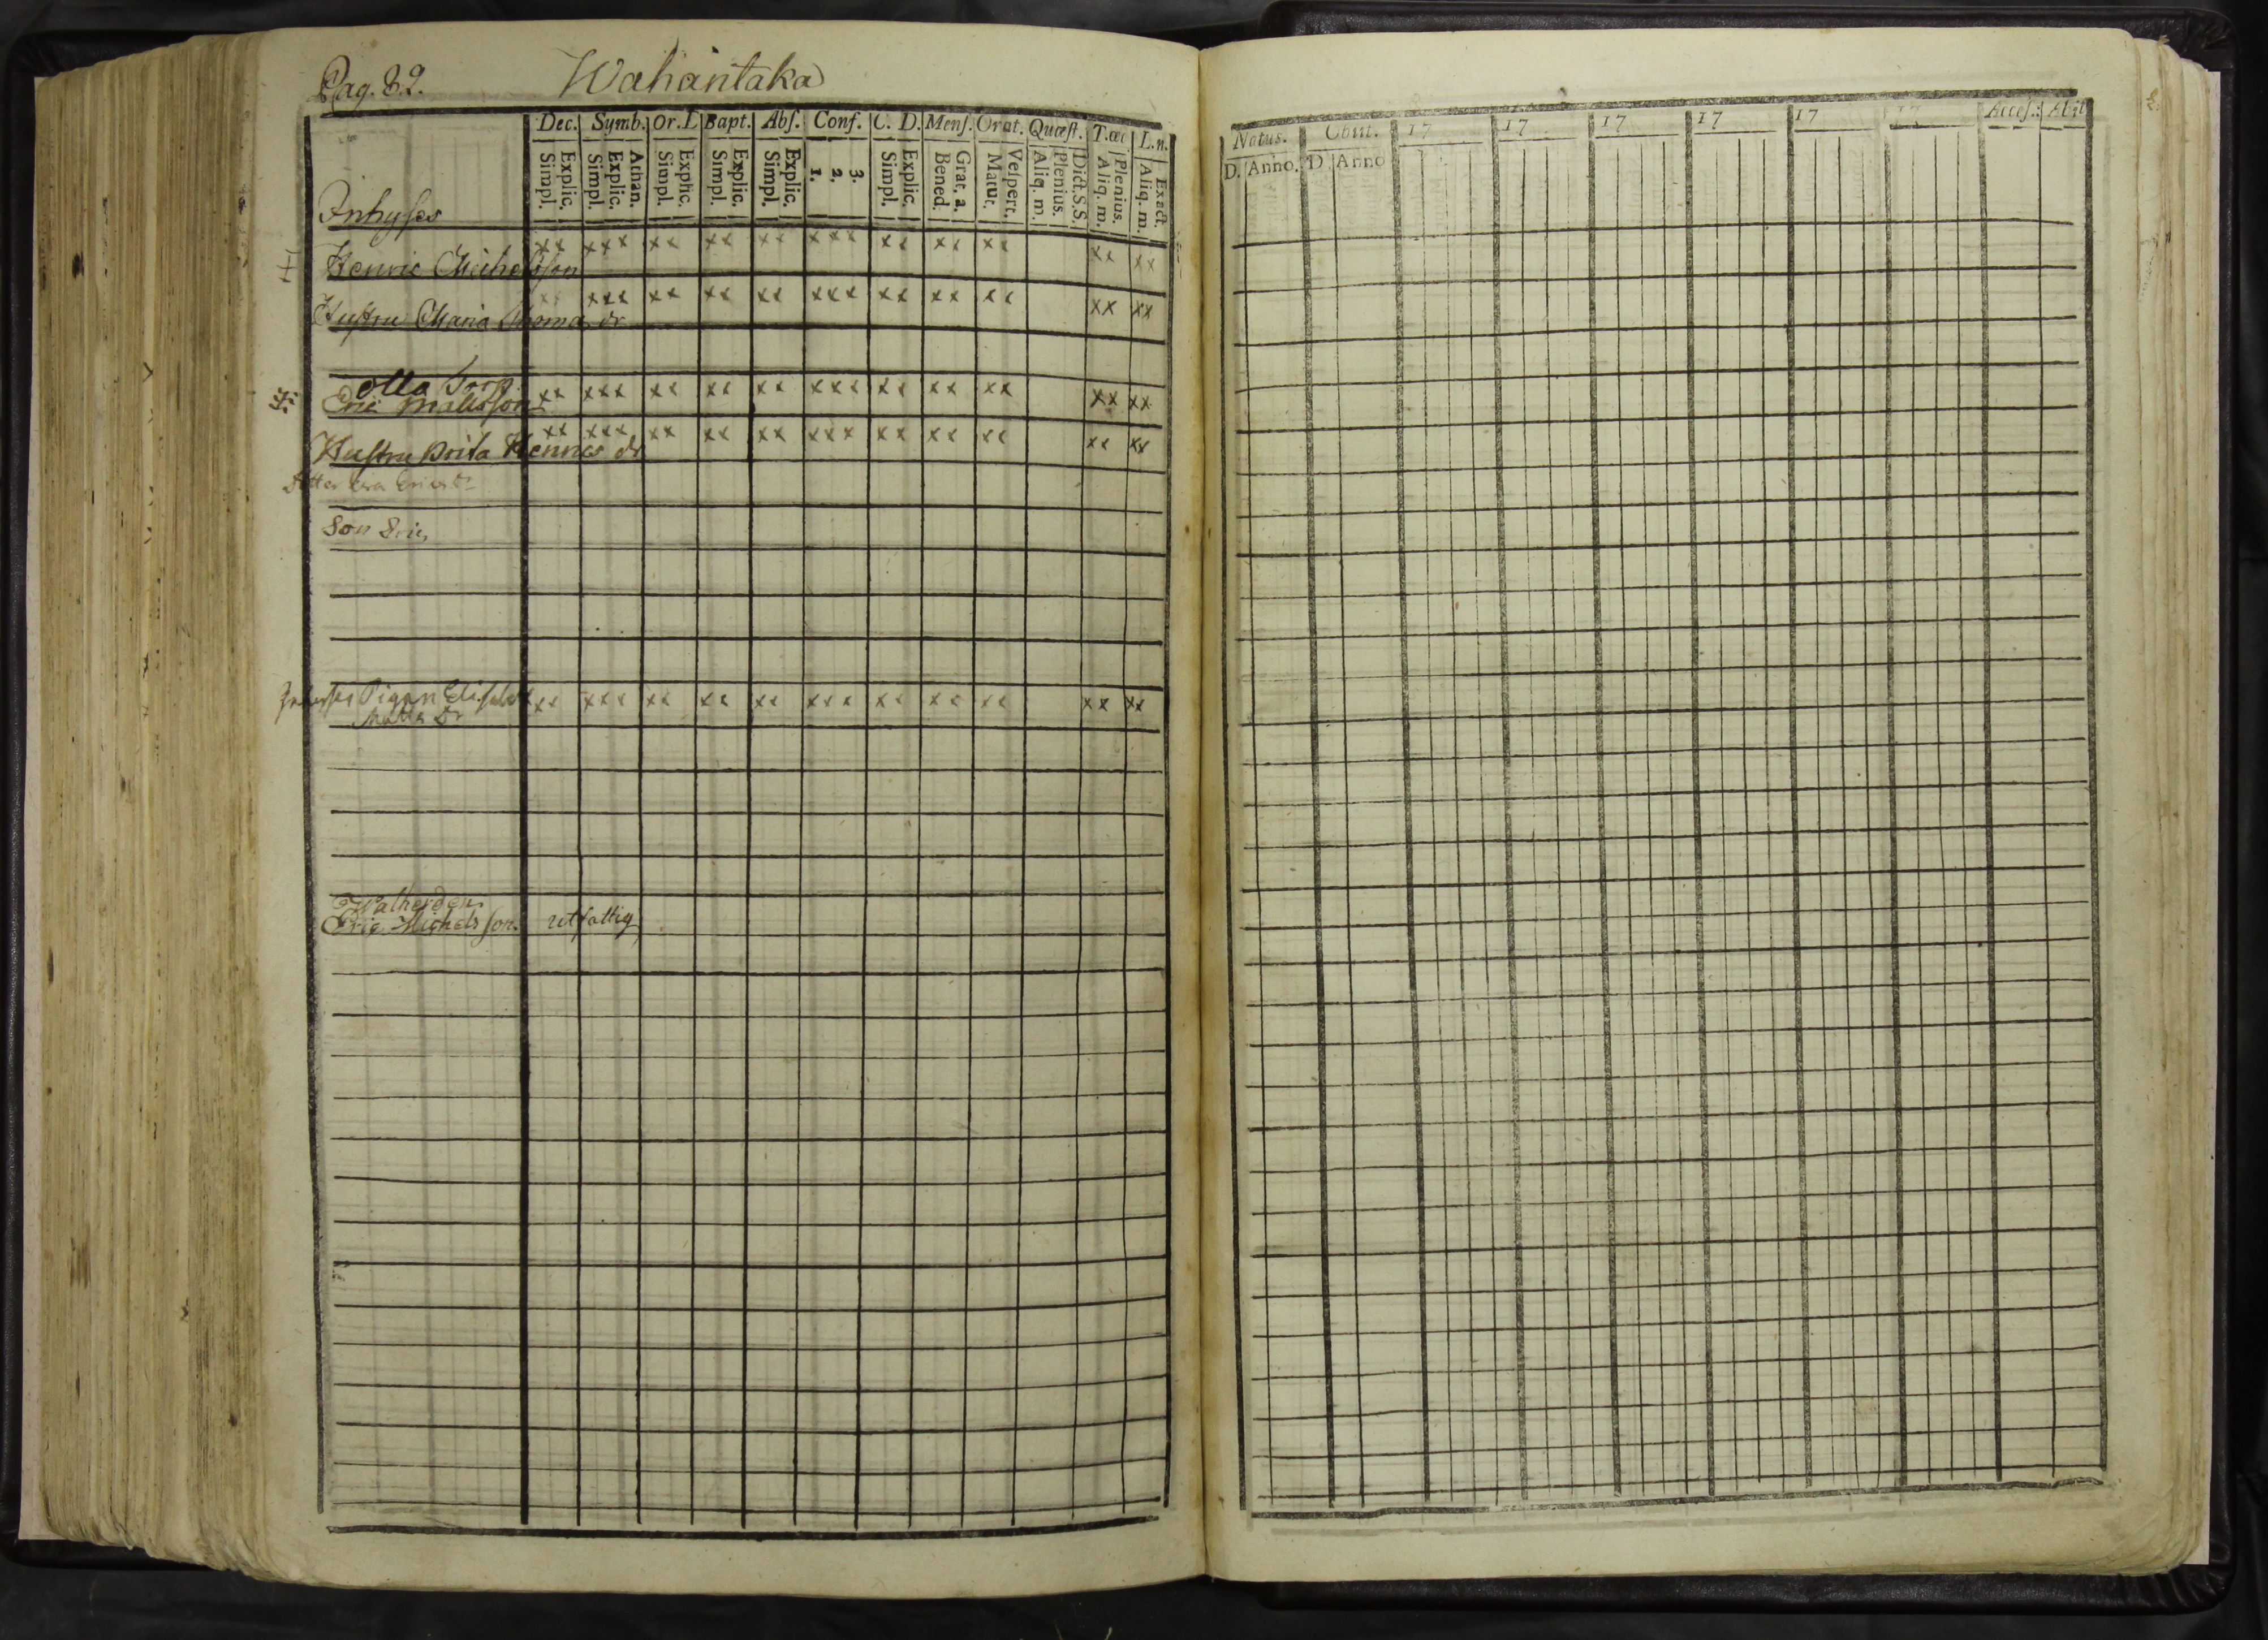 Pag. 82.
Wahantaka
Dec. Symb. Or.L Bapt. Abs. Conf. C. D. Mens. Orat. Quæst. T.œc. L.n.
Explic. Simpl. Athan. Explic. Simpl. Explic. Simpl. Explic. Simpl. Explic. Simpl. 3. 2. 1. Explic. Simpl. Grat. a. Bened. Vespert. Matut. Dict.S.S. Plenius. Aliq. m. Plenius. Aliq. m. Exact. Aliq. m.
Inhyses
Henric Michelsson xx xxx xx xx xx xxx xx xx xx xx xx
Hustru Maria Thomas dr xx xxx xx xx xx xxx xx xx xx xx xx
olla Torp
Eric Matsson xx xxx xx xx xx xxx xx xx xx xx xx
Hustru Brita Henrics dr xx xxx xx xx xx xxx xx xx xx xx xx
Dotter Eric
Son Eric
Inhyses Pigan Elisabet xx xxx xx xx xx xxx xx xx xx xx xx
Matts Dr
Walherden
Eric Michelsson. utfattig
Natus. Obiit. 17 17 17 17 17 17 Acces.: Abit
D. Anno. D. Anno